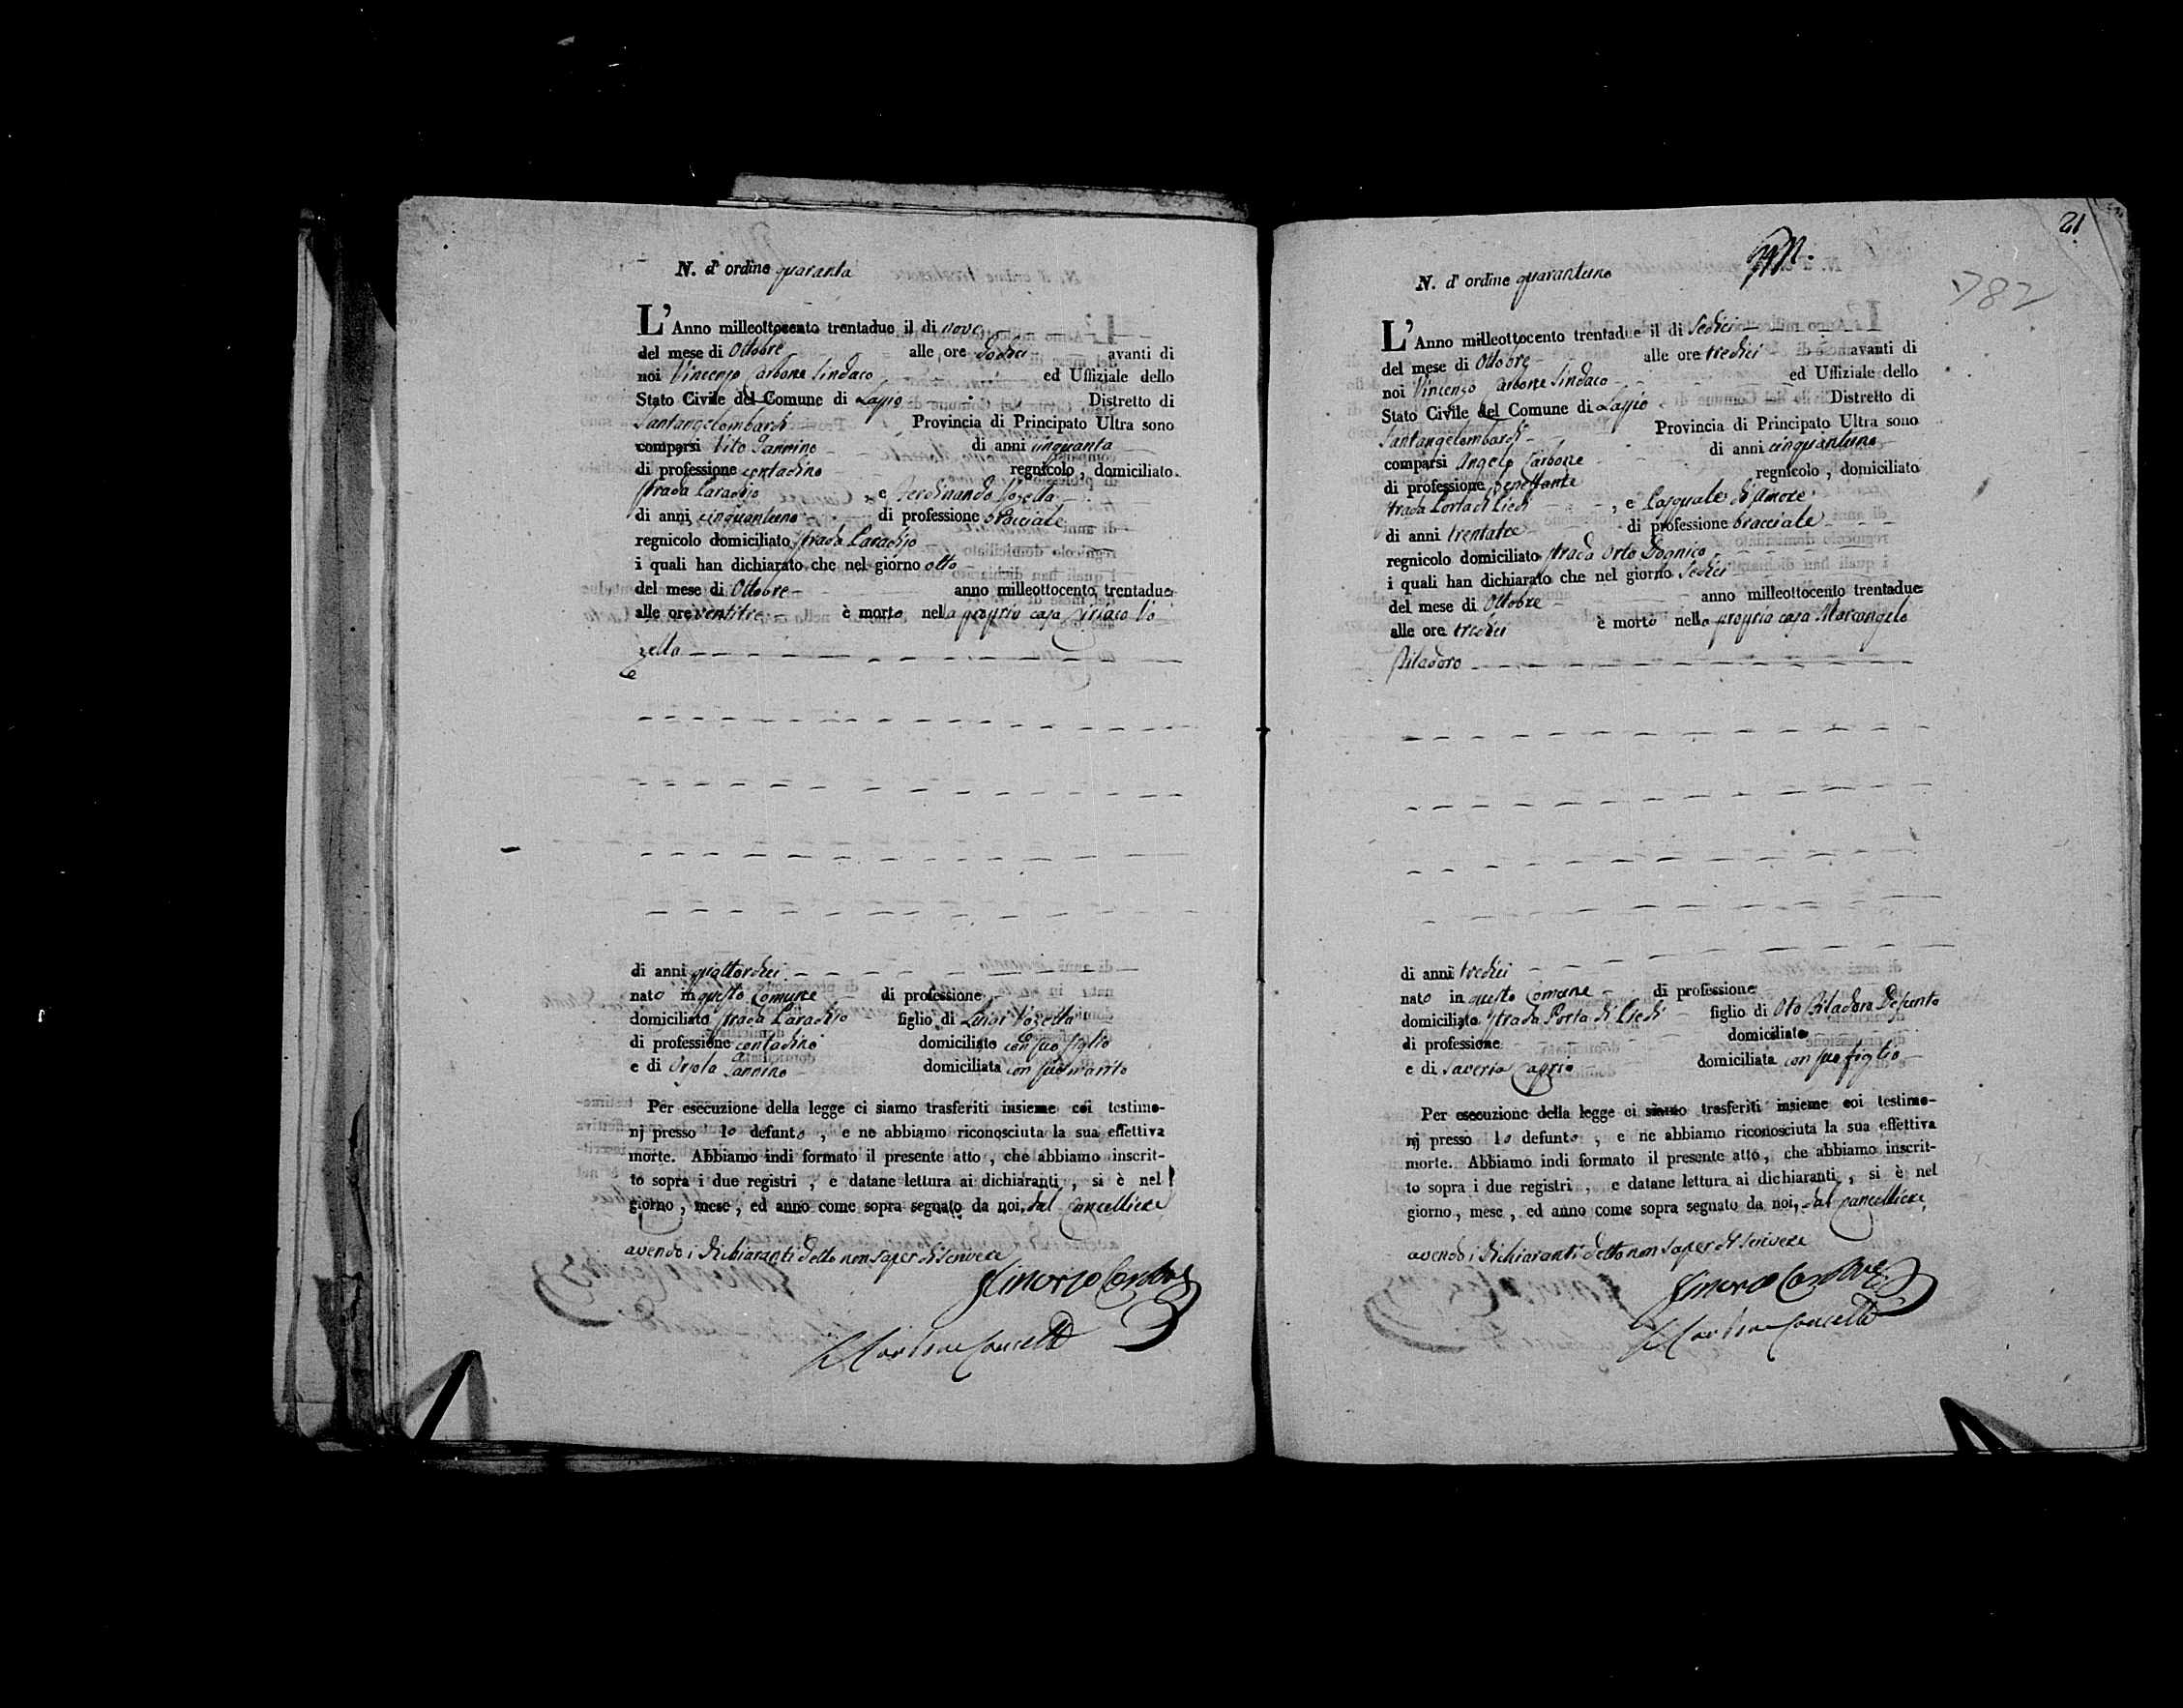 N. d' ordine quaranta
L' Anno milleottocento trentadue il di nove
del mese di Ottobre alle ore dodici avanti di
noi Vincenzo Carbone Sindaco ed Uffiziale dello
Stato Civile del Comune di Lapio Distretto di
Santangelombardi Provincia di Principato Ultra sono
comparsi Vito Iannino di anni cinquanta
di professione contadino regnicolo, domiciliato
strada Paradiso e Ferdinando Vozella
di anni cinquantuno di professione bracciale
regnicolo domiciliato strada Paradiso
i quali han dichiarato che nel giorno otto
del mese di Ottobre anno milleottocento trentadue
alle ore ventitre è morto nella propria casa Ciriaco Vo
zella
di anni quattordici
nato in questo Comune di professione
domiciliato strada Paradiso figlio di Luigi Vozella
di professione contadino domiciliato con suo figlio
e di Orsola Iannino domiciliata con suo marito
Per esecuzione della legge ci siamo trasferiti insieme coi testimo-
nj presso lo defunto, e ne abbiamo riconosciuta la sua effettiva
morte. Abbiamo indi formato il presente atto, che abbiamo inscrit-
to sopra i due registri, e datane lettura ai dichiaranti, si è nel
giorno, mese, ed anno come sopra segnato da noi, dal Cancelliere
avendo i dichiaranti detto non saper di scrivere
Vincenzo Carbone
21
782
N. d' ordine quarantuno
L' Anno milleottocento trentadue il di Sedici
del mese di Ottobre alle ore tredici avanti di
noi Vincenzo Carbone Sindaco ed Uffiziale dello
Stato Civile del Comune di Lapio Distretto di
Santangelombardi Provincia di Principato Ultra sono
comparsi Angelo Carbone di anni cinquantuno
di professione regnicolo, domiciliato
strada Porta di Piedi, e Pasquale d'Amore
di anni trentatre di professione bracciale
regnicolo domiciliato strada Orto Domnico
i quali han dichiarato che nel giorno Sedici
del mese di Ottobre anno milleottocento trentadue
alle ore tredici è morto nella propria casa Marcangelo
Piladoro
di anni tredici
nato in questo Comune di professione
domiciliato strada Porta di Piedi figlio di Oto Piladoro Defunto
di professione domiciliato
e di Saveria Caprio domiciliata con suo figlio
Per esecuzione della legge ci siamo trasferiti insieme coi testimo-
nj presso lo defunto, e ne abbiamo riconosciuta la sua effettiva
morte. Abbiamo indi formato il presente atto, che abbiamo inscrit-
to sopra i due registri, e datane lettura ai dichiaranti, si è nel
giorno, mese, ed anno come sopra segnato da noi, dal Cancelliere,
avendo i dichiaranti detto non saper di scrivere
Vincenzo Carbone